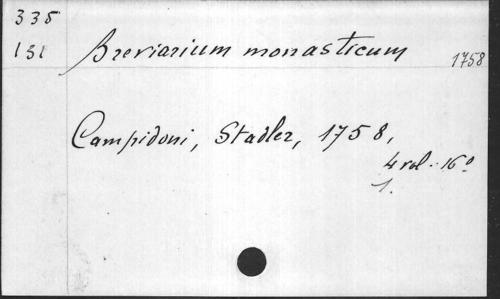 335
151 Breviarium monasticum 1758
Campidoni, Stadler, 1758,
4 vol. 16º
1.